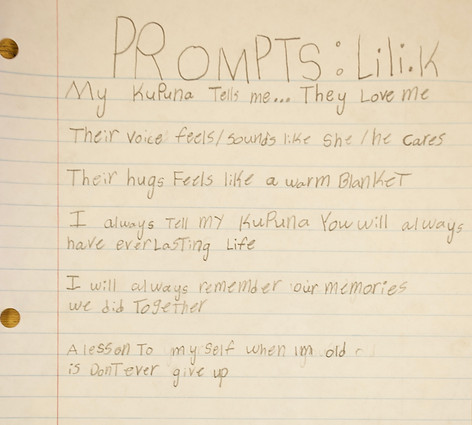 PROMPTS: Lili.K
My Kupuna Tells me... They Love me
Their voice feels/sounds like she/he cares
Their hugs Feels like a warm Blanket
I always Tell my Kupuna You will always
have everLasting Life
I will always remember our memories
we did Together
A lesson To my self when im old
is Dont ever give up